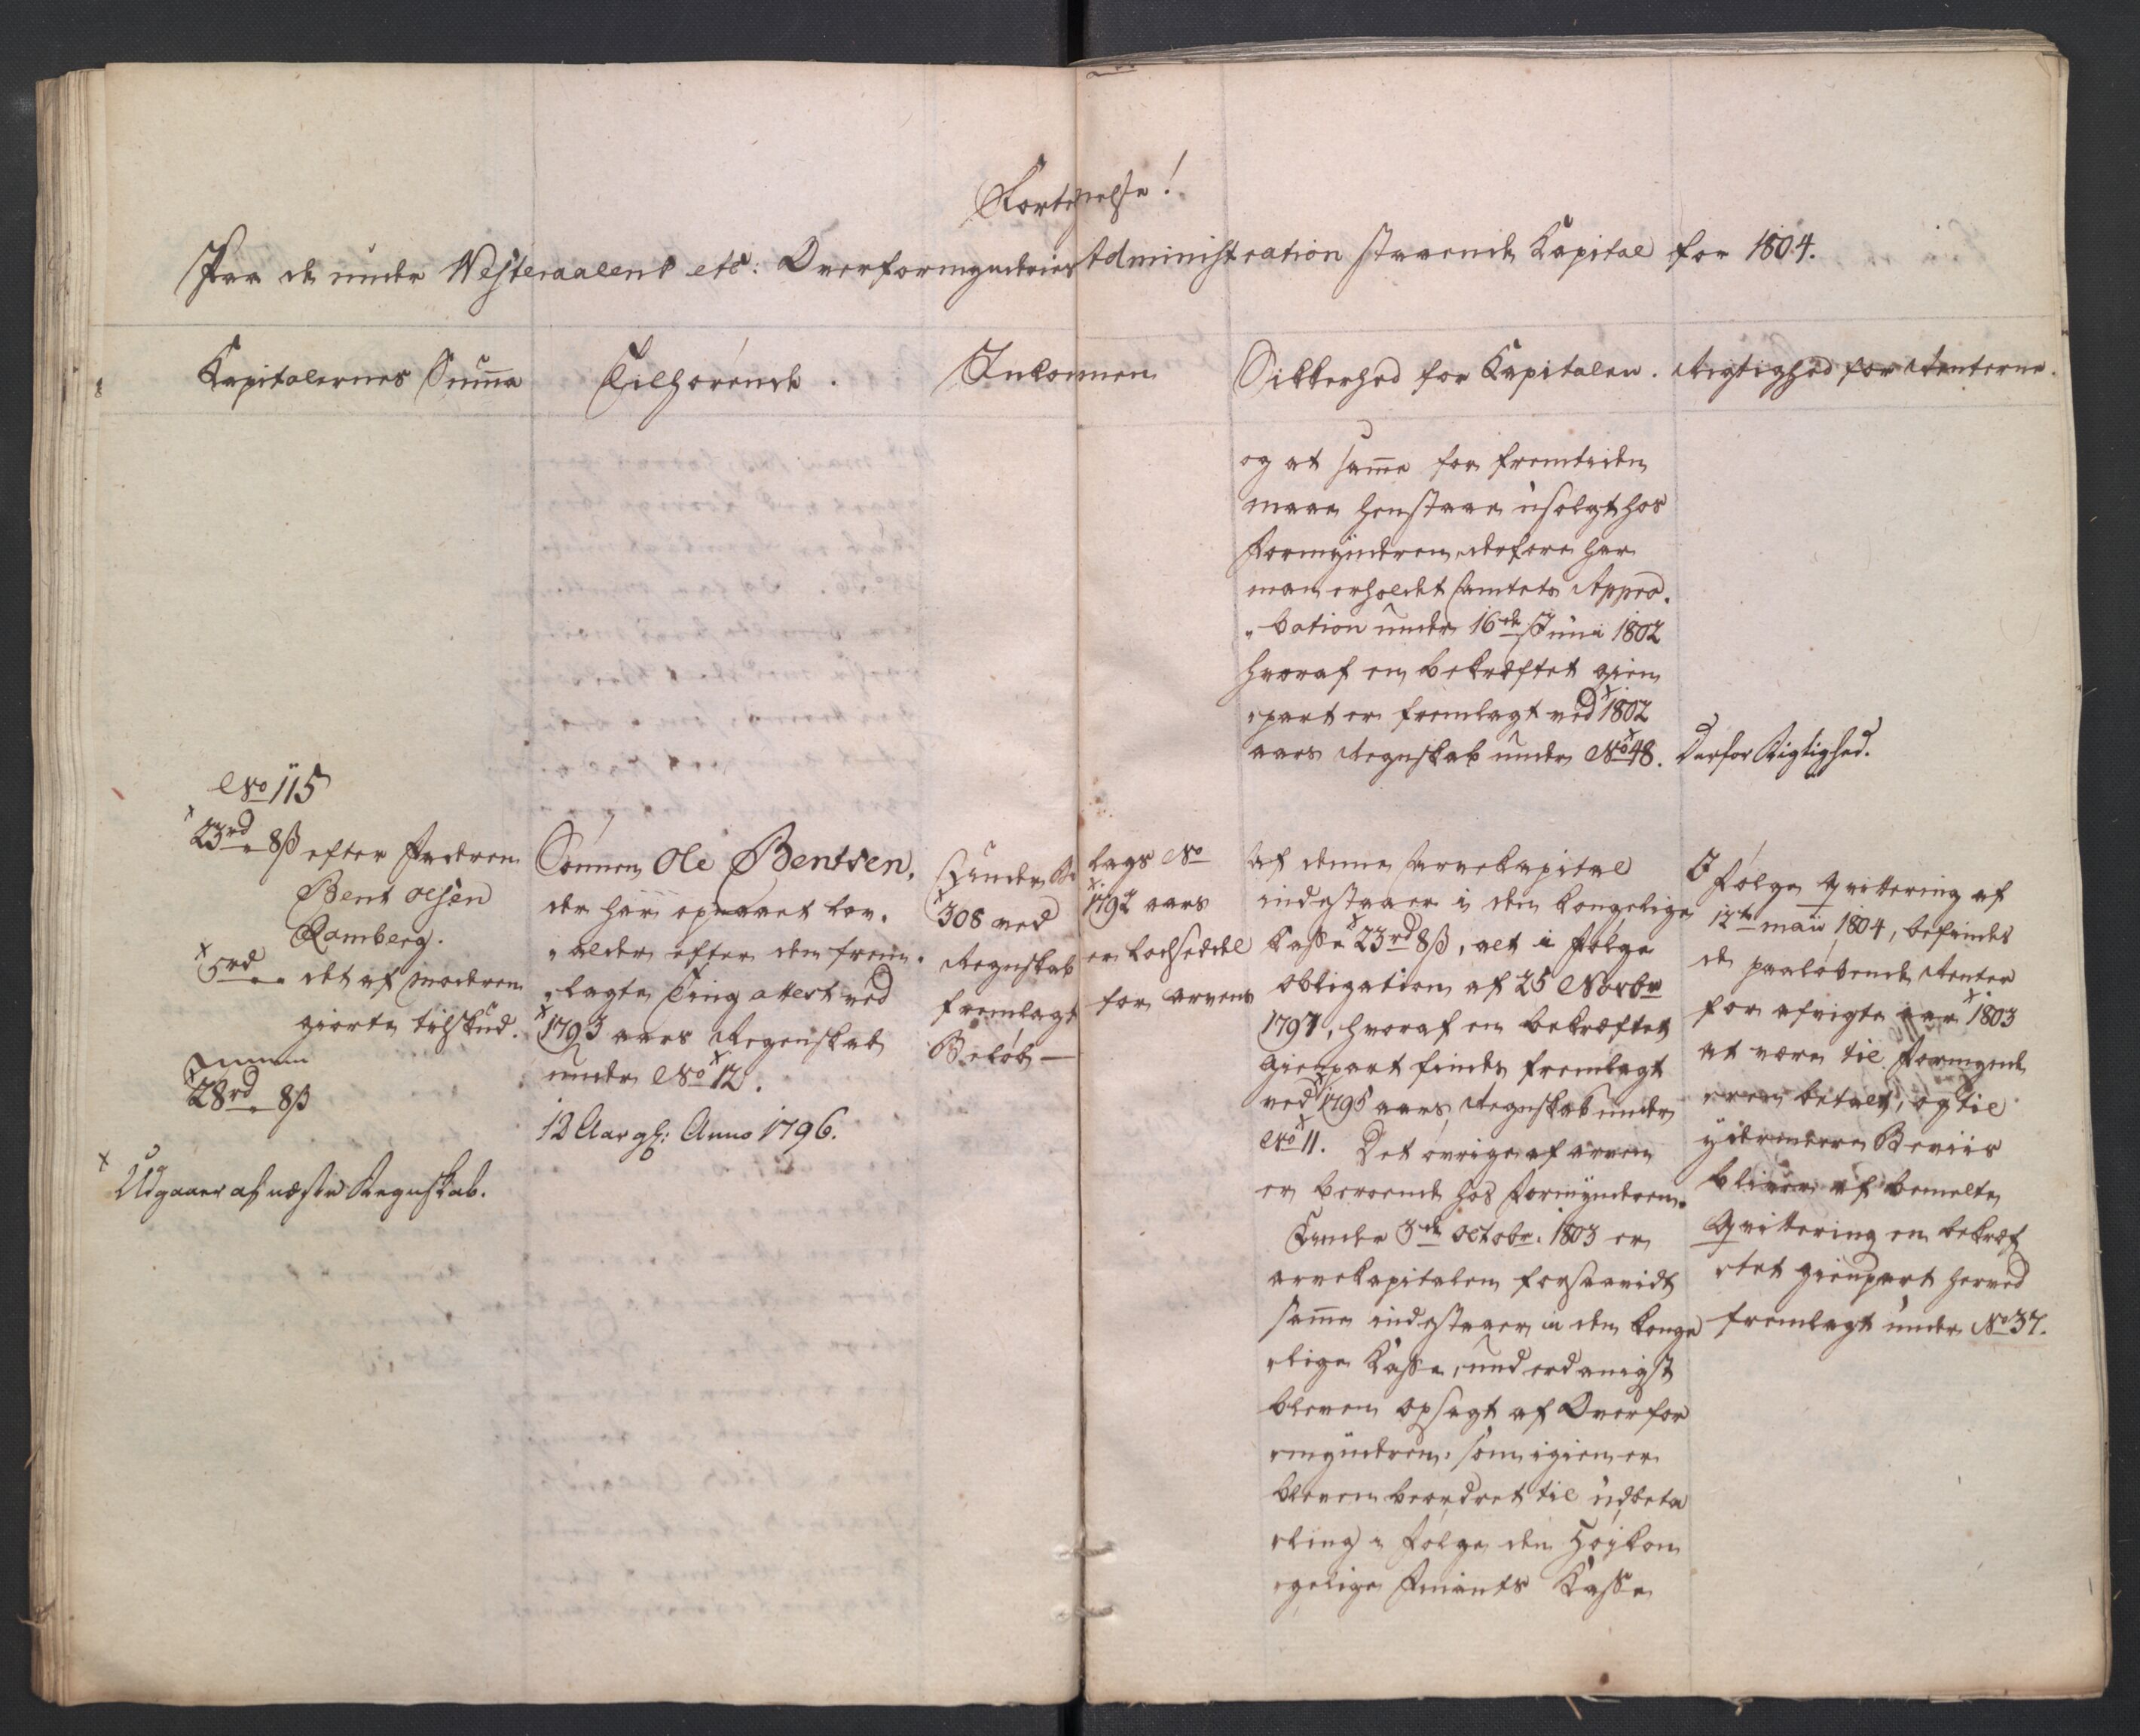 Fortegnelse!
Paa de under Westeraalens etc: Overformynderies Administration staaende Kapital for 1804.
Kapitalernes Suma
Tilhørende.
Inkommen
Sikkerhed for Kapitalen.
Rigtighed for Renterne.
og at same for fremtiden
maae henstaae usolgt hos
Formynderen, derfore har
man erholdet Amtets Appro-
"bation under 16de Junii 1802
hvoraf en bekræftet gien
"part er fremlagt ved 1802
aars Regnskab under No 48.
Derfor Rigtighed.
No 115
23rd 8ß efter Faderen
Bent Olsen
Ramberg.
5rd " det af Moderen
giorte tilskud.
28rd 8ß
Udgaaer af næste Regnskab.
Sønnen Ole Bentsen,
der har opnaaet lav-
"alder efter den frem-
"lagte Ting attest ved
1793 aars Regenskab
under No 12.
12 Aar gl: Anno 1796.
Under Bilags No
308 ved 1792 aars
Regnskab er Lodseddel
fremlagt for arvens
Beløb —
Af denne Arvekapital
indestaaer i den kongelige
Kasse 23rd 8ß, alt i Følge
Obligation af 25 Novbr
1797, hvoraf en bekræftet
Gienpart findes fremlagt
ved 1795 aars Regnskab under
No 11. Det øvrige af arven
er beroende hos Formynderen.
Under 3de Octobr. 1803 er
arvekapitalen forsaavidt
same indestaaer i den konge
"lige Kasse, underdanigst
bleven opsagt af Overfor
"mynderen, som igien er
bleven beordret til udbeta
"ling i Følge den Høykon
"gelige Finants Kasse
I Følge Qvittering af
12te maii 1804, befindes
de paaløbende Renter
for afvigte aar 1803
at være til Formynd
eren betalt, og til
ydermeere Beviis
bliver af bemelte
Qvittering en bekræf
"tet gienpart herved
fremlagt under No 37.